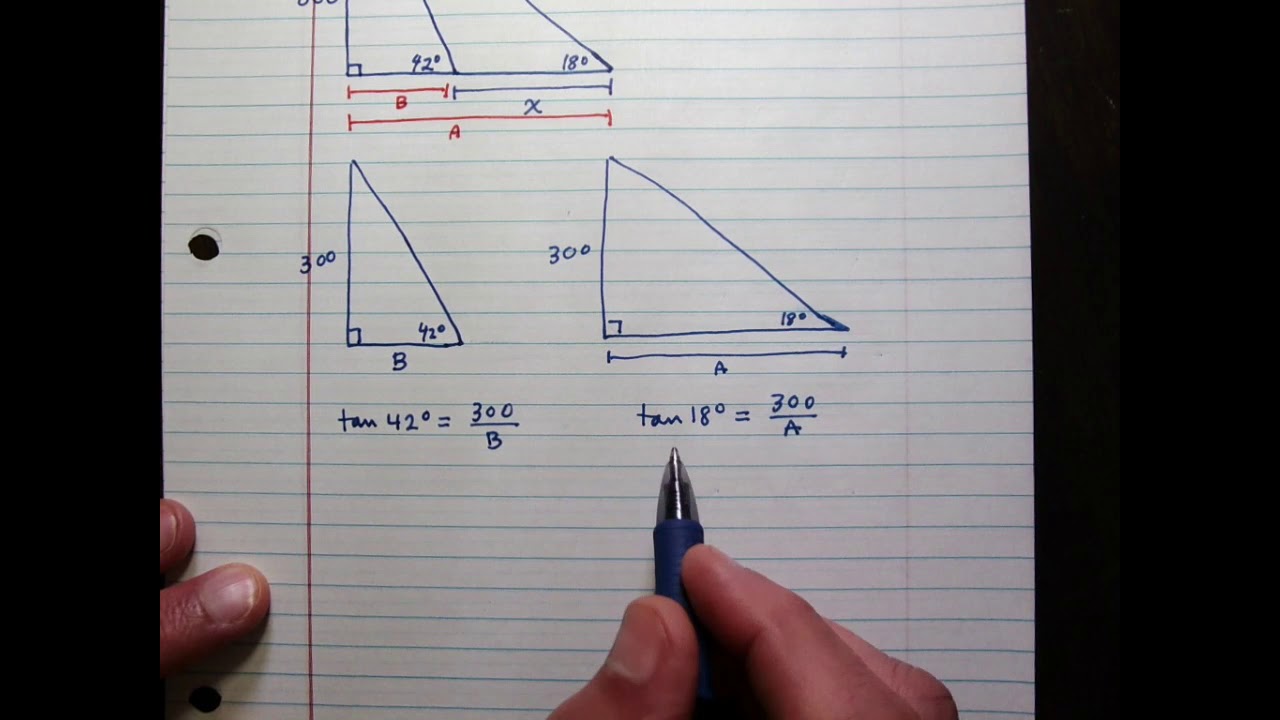 300
42° 18°
B
x
A
300 300
42° 18°
B A
tan 42° = 300/B
tan 18° = 300/A